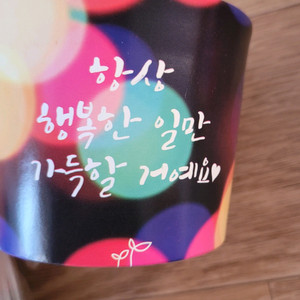 항상
행복한 일만
가득할 거예요♥